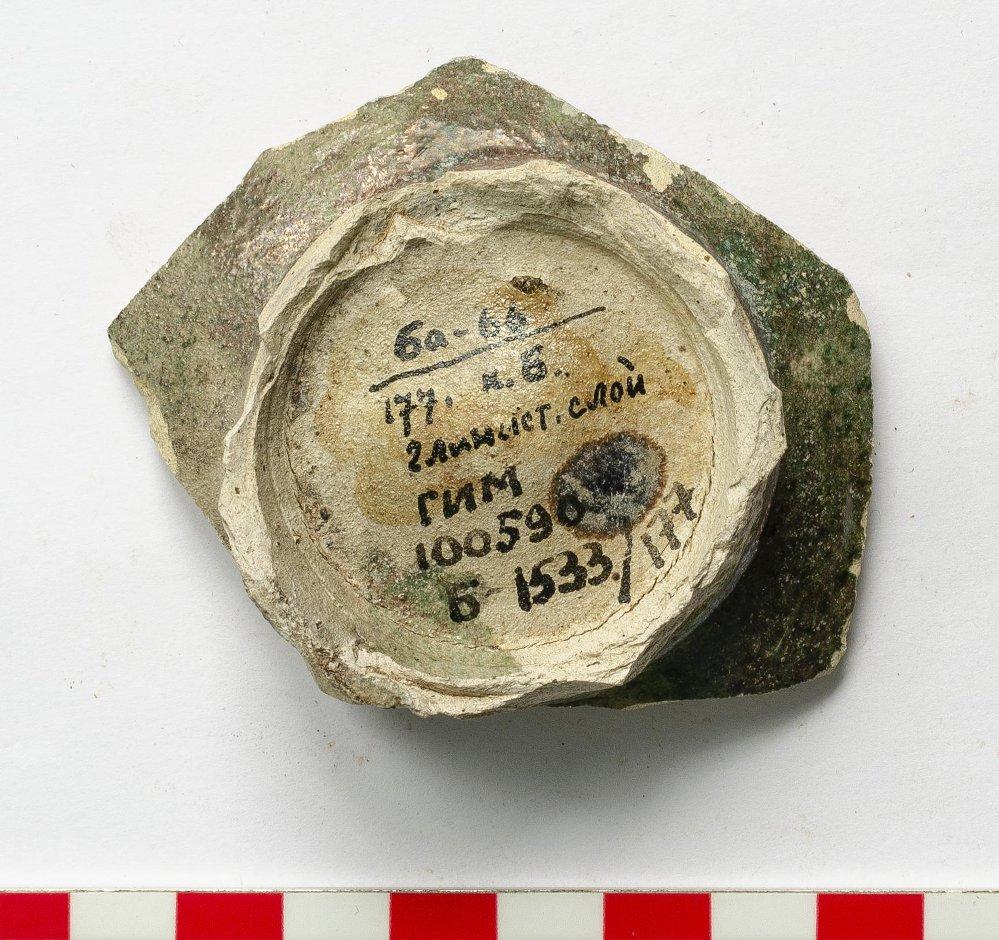 6а-6б
177. к. Б.
глинист. слой
ГИМ
100590
Б 1533/177